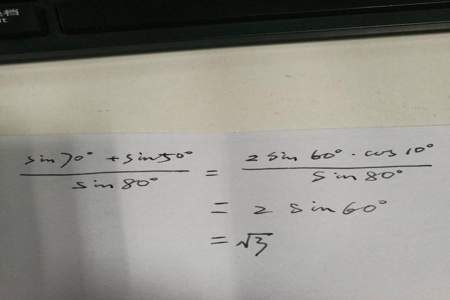 sin70° + sin50° / sin80° = 2 sin 60° · cos 10° / sin 80°
= 2 sin 60°
= √3